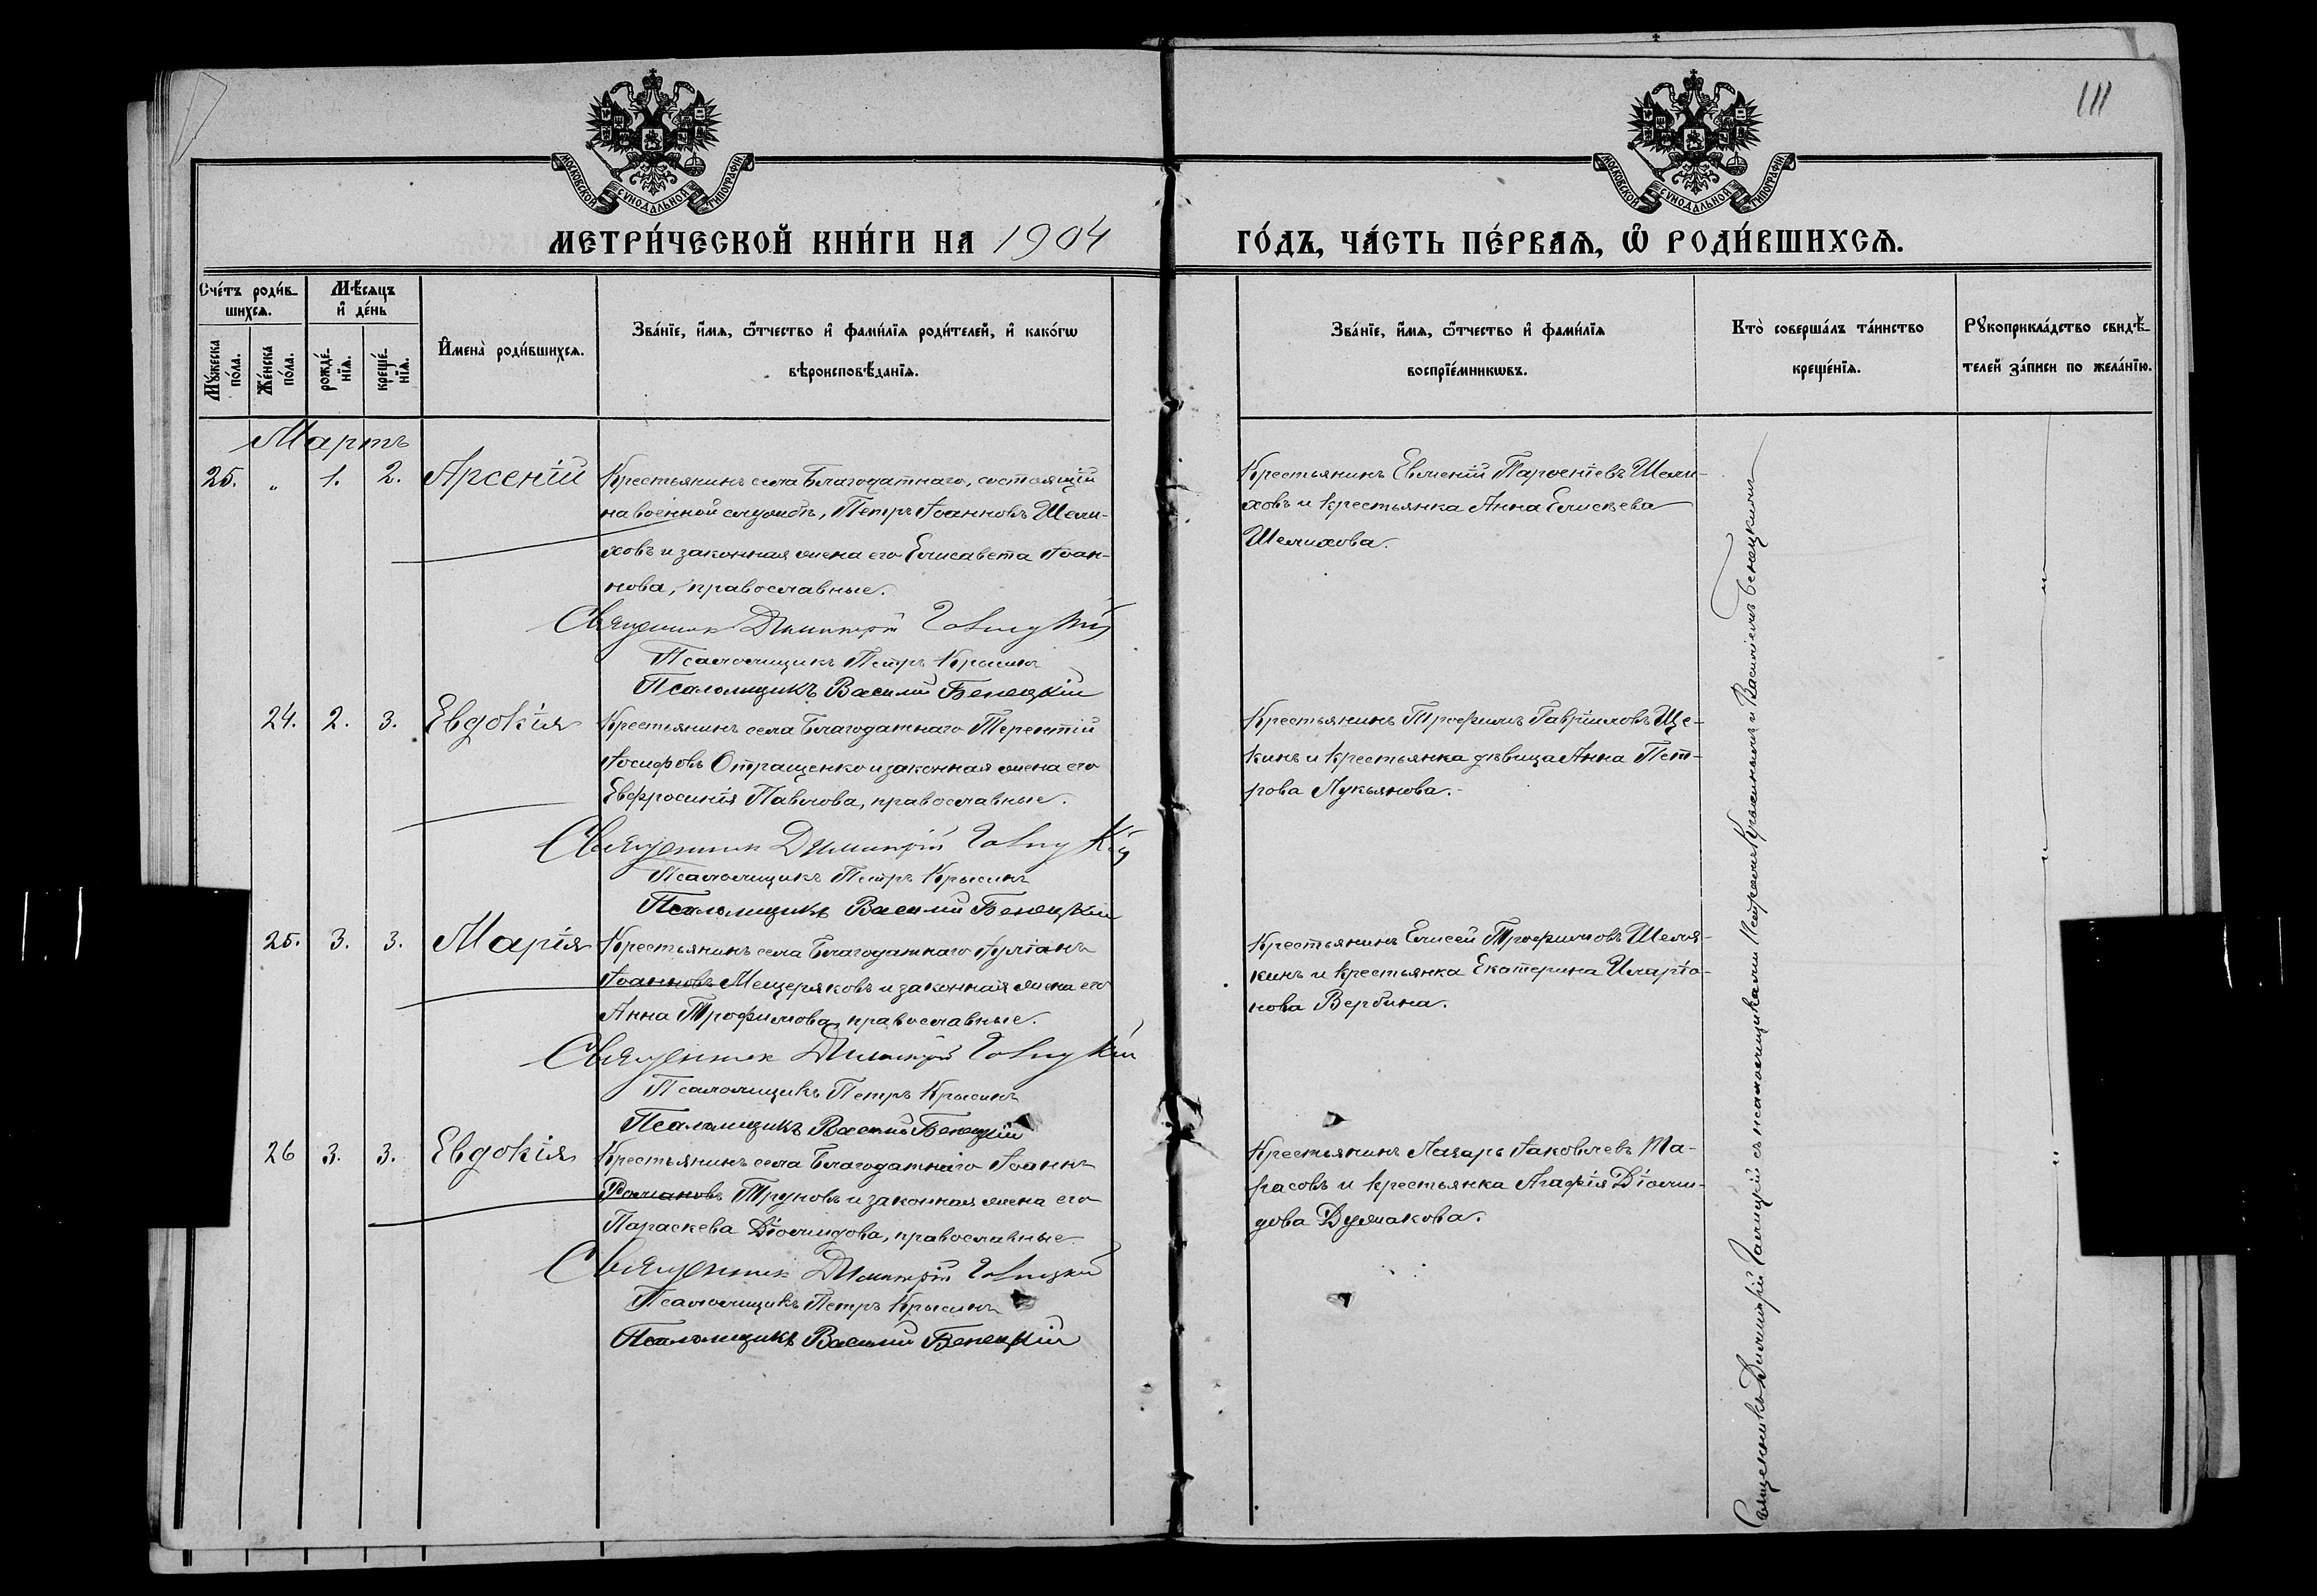 111
МОСКОВСКОЙ СѴНОДАЛЬНОЙ ТИПОГРАФІИ
МОСКОВСКОЙ СѴНОДАЛЬНОЙ ТИПОГРАФІИ
МЕТРИ́ЧЕСКОЙ КНИ́ГИ НА 1904 ГО́ДЪ, ЧА́СТЬ ПЕ́РВАѦ, Ѽ РОДИ́ВШИХСѦ.
Сче́тъ роди́в-
шихсѧ.
Мꙋ́жеска
по́ла.
Же́нска
по́ла.
Мѣ́сѧцъ
и҆ де́нь
рожде́-
нїѧ.
креще́-
нїѧ.
И҆мена̀ роди́вшихсѧ.
Зва́нїе, и҆́мѧ, ѻ҆́тчество и҆ фами́лїѧ роди́телей, и҆ како́гѡ
вѣроисповѣ́данїѧ.
Зва́нїе, и҆́мѧ, ѻ҆́тчество и҆ фами́лїѧ
воспрїе́мникѡвъ.
Кто̀ соверша́лъ та́инство
креще́нїѧ.
Рꙋкоприкла́дство свидѣ́-
телей за́писи по жела́нїю.
Мартъ
25. „ 1. 2. Арсеній
Крестьянинъ села Благодатнаго, состоящій
на военной службѣ, Петръ Іоанновъ Шели-
ховъ и законная жена его Елисавета Іоан-
нова, православные.
Священник Димитрій Галицкій
Псаломщикъ Петръ Крысинъ
Псаломщикъ Василій Бенецкій
Крестьянинъ Евменій Парѳеніевъ Шели-
ховъ и крестьянка Анна Елисѣева
Шелихова.
24. 2. 3. Евдокія
Крестьянинъ села Благодатнаго Терентій
Іосифовъ Отращенко и законная жена его
Евфросинія Павлова, православные.
Священник Димитрій Галицкій
Псаломщикъ Петръ Крысинъ
Псаломщикъ Василій Бенецкій
Крестьянинъ Трофимъ Гавріиловъ Ще-
кинъ и крестьянка дѣвица Анна Пет-
рова Лукьянова.
25. 3. 3. Марія
Крестьянинъ села Благодатнаго Іуліанъ
Іоанновъ Мещеряковъ и законная жена его
Анна Трофимова, православные.
Священник Димитрій Галицкій
Псаломщикъ Петръ Крысинъ
Псаломщикъ Василій Бенецкій
Крестьянинъ Елисей Трофимовъ Шеля-
кинъ и крестьянка Екатерина Иларіо-
нова Вербина.
26 3. 3. Евдокія
Крестьянинъ села Благодатнаго Іоаннъ
Романовъ Труновъ и законная жена его
Параскева Діомидова, православные.
Священник Димитрій Галицкій
Псаломщикъ Петръ Крысинъ
Псаломщикъ Василій Бенецкій
Крестьянинъ Лазарь Іаковлевъ Та-
расовъ и крестьянка Агафія Діоми-
дова Думакова.
Священникъ Димитрій Галицкій съ псаломщиками Петромъ Крысинымъ и Василіемъ Бенецкимъ